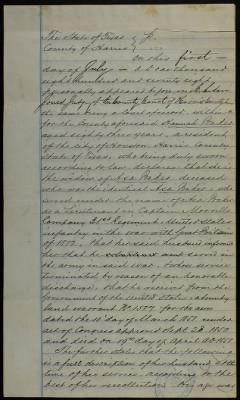 The State of Texas
County of Harris
On this first
day of July A.D. one thousand
eight hundred and seventy eight
personally appeared before me
Judge of the County Court of Harris County
the same being a Court of record, within &
for the County aforesaid
aged eighty three years, a resident
of the City of Houston, Harris County
State of Texas, who being duly sworn
according to law, declares that she is
the widow of Asa Baker, deceased
who was the identical Asa Baker who
served under the name of Asa Baker
as a Lieutenant in Captain
Company 21st Regiment of United States
infantry in the war with Great Britain
of 1812. that her said husband informed
her that he and served in
the army in said war
terminated by reason of an honorable
discharge. that he received from the
Government of the United States a bounty
land warrant No 1577 for
dated the 11th day of March 1851 under
act of Congress approved Sept 28. 1850
and died on 19th day of April AD 1851
She further states that the following
is a full description of her husband, at the
time of his service, according to the
best of her recollection. His age was